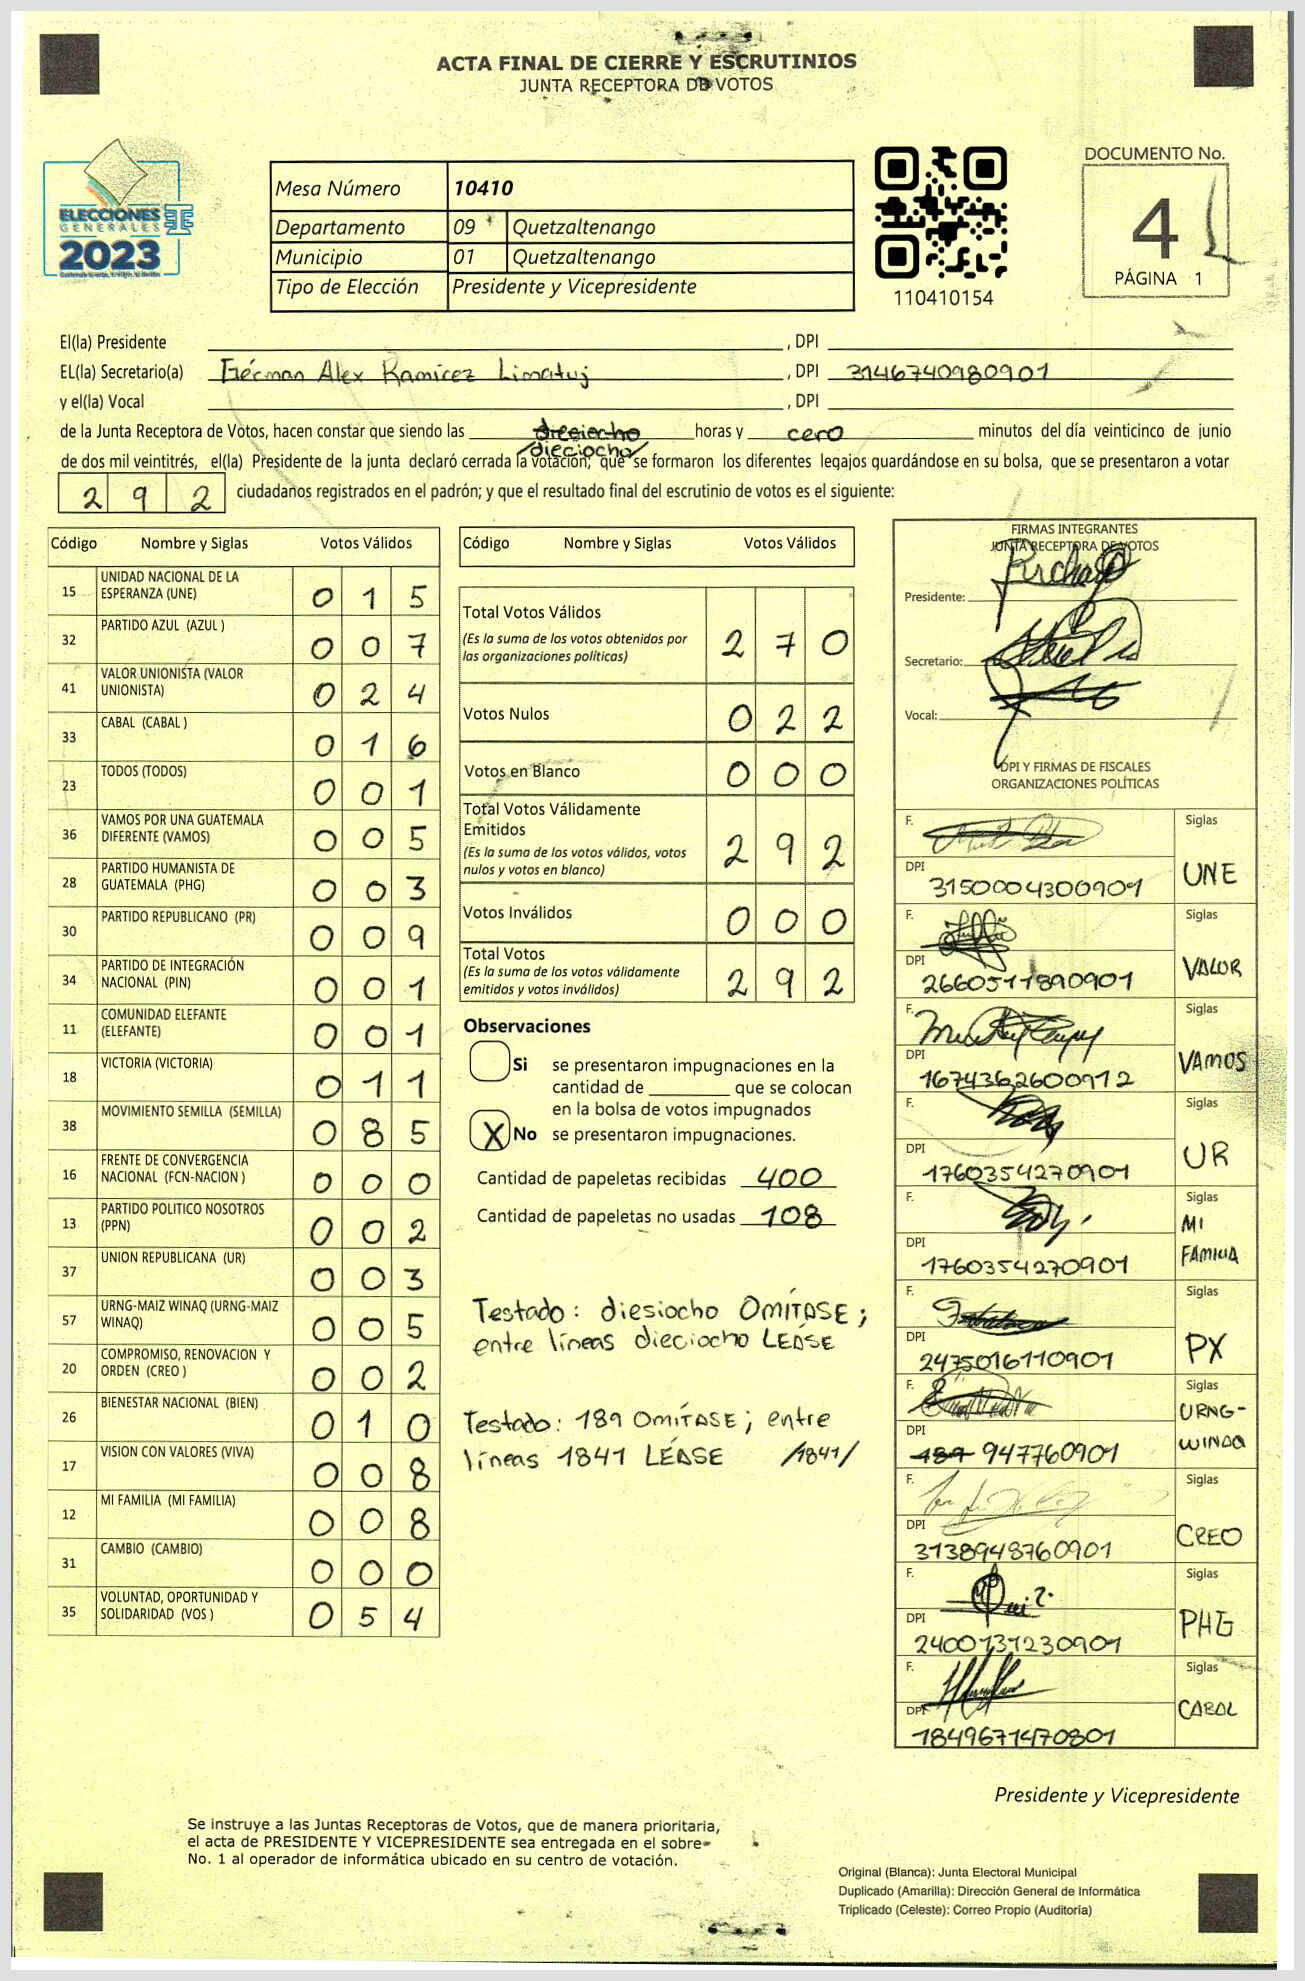 ACTA FINAL DE CIERRE Y ESCRUTINIOS
JUNTA RECEPTORA DE VOTOS
ELECCIONES
GENERALES
2023
Mesa Número 10410
Departamento 09 Quetzaltenango
Municipio 01 Quetzaltenango
Tipo de Elección Presidente y Vicepresidente
110410154
DOCUMENTO No.
4
PÁGINA 1
El(la) Presidente , DPI
EL(la) Secretario(a) Gérman Alex Ramirez Limatuj , DPI 3146740980901
y el(la) Vocal , DPI
de la Junta Receptora de Votos, hacen constar que siendo las diesiocho horas y cero minutos del día veinticinco de junio
/dieciocho/
de dos mil veintitrés, el(la) Presidente de la junta declaró cerrada la votación; que se formaron los diferentes legajos guardándose en su bolsa, que se presentaron a votar
292 ciudadanos registrados en el padrón; y que el resultado final del escrutinio de votos es el siguiente:
Código Nombre y Siglas Votos Válidos
15 UNIDAD NACIONAL DE LA ESPERANZA (UNE) 015
32 PARTIDO AZUL (AZUL ) 007
41 VALOR UNIONISTA (VALOR UNIONISTA) 024
33 CABAL (CABAL ) 016
23 TODOS (TODOS) 001
36 VAMOS POR UNA GUATEMALA DIFERENTE (VAMOS) 005
28 PARTIDO HUMANISTA DE GUATEMALA (PHG) 003
30 PARTIDO REPUBLICANO (PR) 009
34 PARTIDO DE INTEGRACIÓN NACIONAL (PIN) 001
11 COMUNIDAD ELEFANTE (ELEFANTE) 001
18 VICTORIA (VICTORIA) 011
38 MOVIMIENTO SEMILLA (SEMILLA) 085
16 FRENTE DE CONVERGENCIA NACIONAL (FCN-NACION ) 000
13 PARTIDO POLITICO NOSOTROS (PPN) 002
37 UNION REPUBLICANA (UR) 003
57 URNG-MAIZ WINAQ (URNG-MAIZ WINAQ) 005
20 COMPROMISO, RENOVACION Y ORDEN (CREO ) 002
26 BIENESTAR NACIONAL (BIEN) 010
17 VISION CON VALORES (VIVA) 008
12 MI FAMILIA (MI FAMILIA) 008
31 CAMBIO (CAMBIO) 000
35 VOLUNTAD, OPORTUNIDAD Y SOLIDARIDAD (VOS ) 054
Código Nombre y Siglas Votos Válidos
Total Votos Válidos 270
(Es la suma de los votos obtenidos por
las organizaciones políticas)
Votos Nulos 022
Votos en Blanco 000
Total Votos Válidamente
Emitidos 292
(Es la suma de los votos válidos, votos
nulos y votos en blanco)
Votos Inválidos 000
Total Votos 292
(Es la suma de los votos válidamente
emitidos y votos inválidos)
Observaciones
Si se presentaron impugnaciones en la
cantidad de que se colocan
en la bolsa de votos impugnados
X No se presentaron impugnaciones.
Cantidad de papeletas recibidas 400
Cantidad de papeletas no usadas 108
Testado: diesiocho OMÍTASE;
entre líneas dieciocho LEASE
Testado: 189 OMÍTASE; entre
líneas 1841 LÉASE /1841/
FIRMAS INTEGRANTES
JUNTA RECEPTORA DE VOTOS
Presidente:
Secretario:
Vocal:
DPI Y FIRMAS DE FISCALES
ORGANIZACIONES POLÍTICAS
F. Siglas
DPI 3150004300901 UNE
F. Siglas
DPI 2660511890901 VALOR
F. Siglas
DPI 1674362600912 VAMOS
F. Siglas
DPI 1760354270901 UR
F. Siglas
DPI 1760354270901 MI FAMILIA
F. Siglas
DPI 2475016110901 PX
F. Siglas
DPI 189 947760901 URNG-WINAQ
F. Siglas
DPI 3138948760901 CREO
F. Siglas
DPI 2400131230901 PHG
F. Siglas
DPI 1849671470801 CABAL
Presidente y Vicepresidente
Se instruye a las Juntas Receptoras de Votos, que de manera prioritaria,
el acta de PRESIDENTE Y VICEPRESIDENTE sea entregada en el sobre
No. 1 al operador de informática ubicado en su centro de votación.
Original (Blanca): Junta Electoral Municipal
Duplicado (Amarilla): Dirección General de Informática
Triplicado (Celeste): Correo Propio (Auditoría)